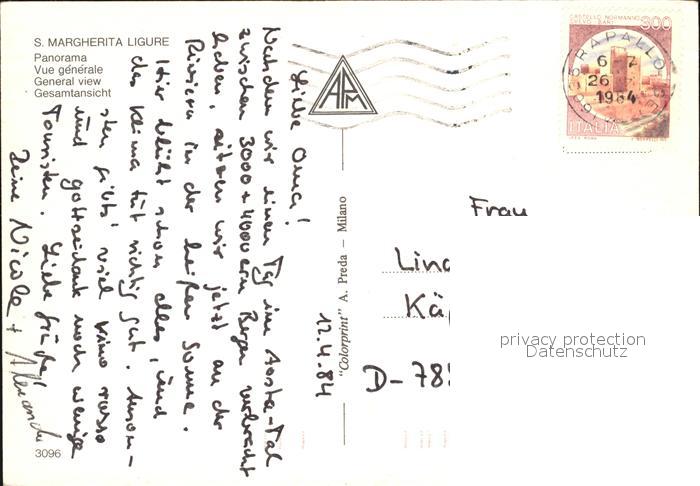 S. MARGHERITA LIGURE
Panorama
Vue générale
General view
Gesamtansicht
Liebe Oma!
Nachdem wir einen Tag im Aosta-Tal
zwischen 3000 + 4000ern Bergen verbracht
haben, sitzen wir jetzt an der
Riviera in der heißen Sonne.
Hier blüht schon alles, und
das Klima tut richtig gut. Anson-
sten gibts' viel vino rosso
und gottseidank noch wenige
Touristen. Liebe Grüße,
Deine Nicole +
3096
APM
"Colorprint" A. Preda — Milano
12.4.84
CASTELLO NORMANNO
SVEVO BARI
300
ITALIA
RAPALLO
6 7
26
1984
Frau
Lind
Kä
D-785
privacy protection
Datenschutz